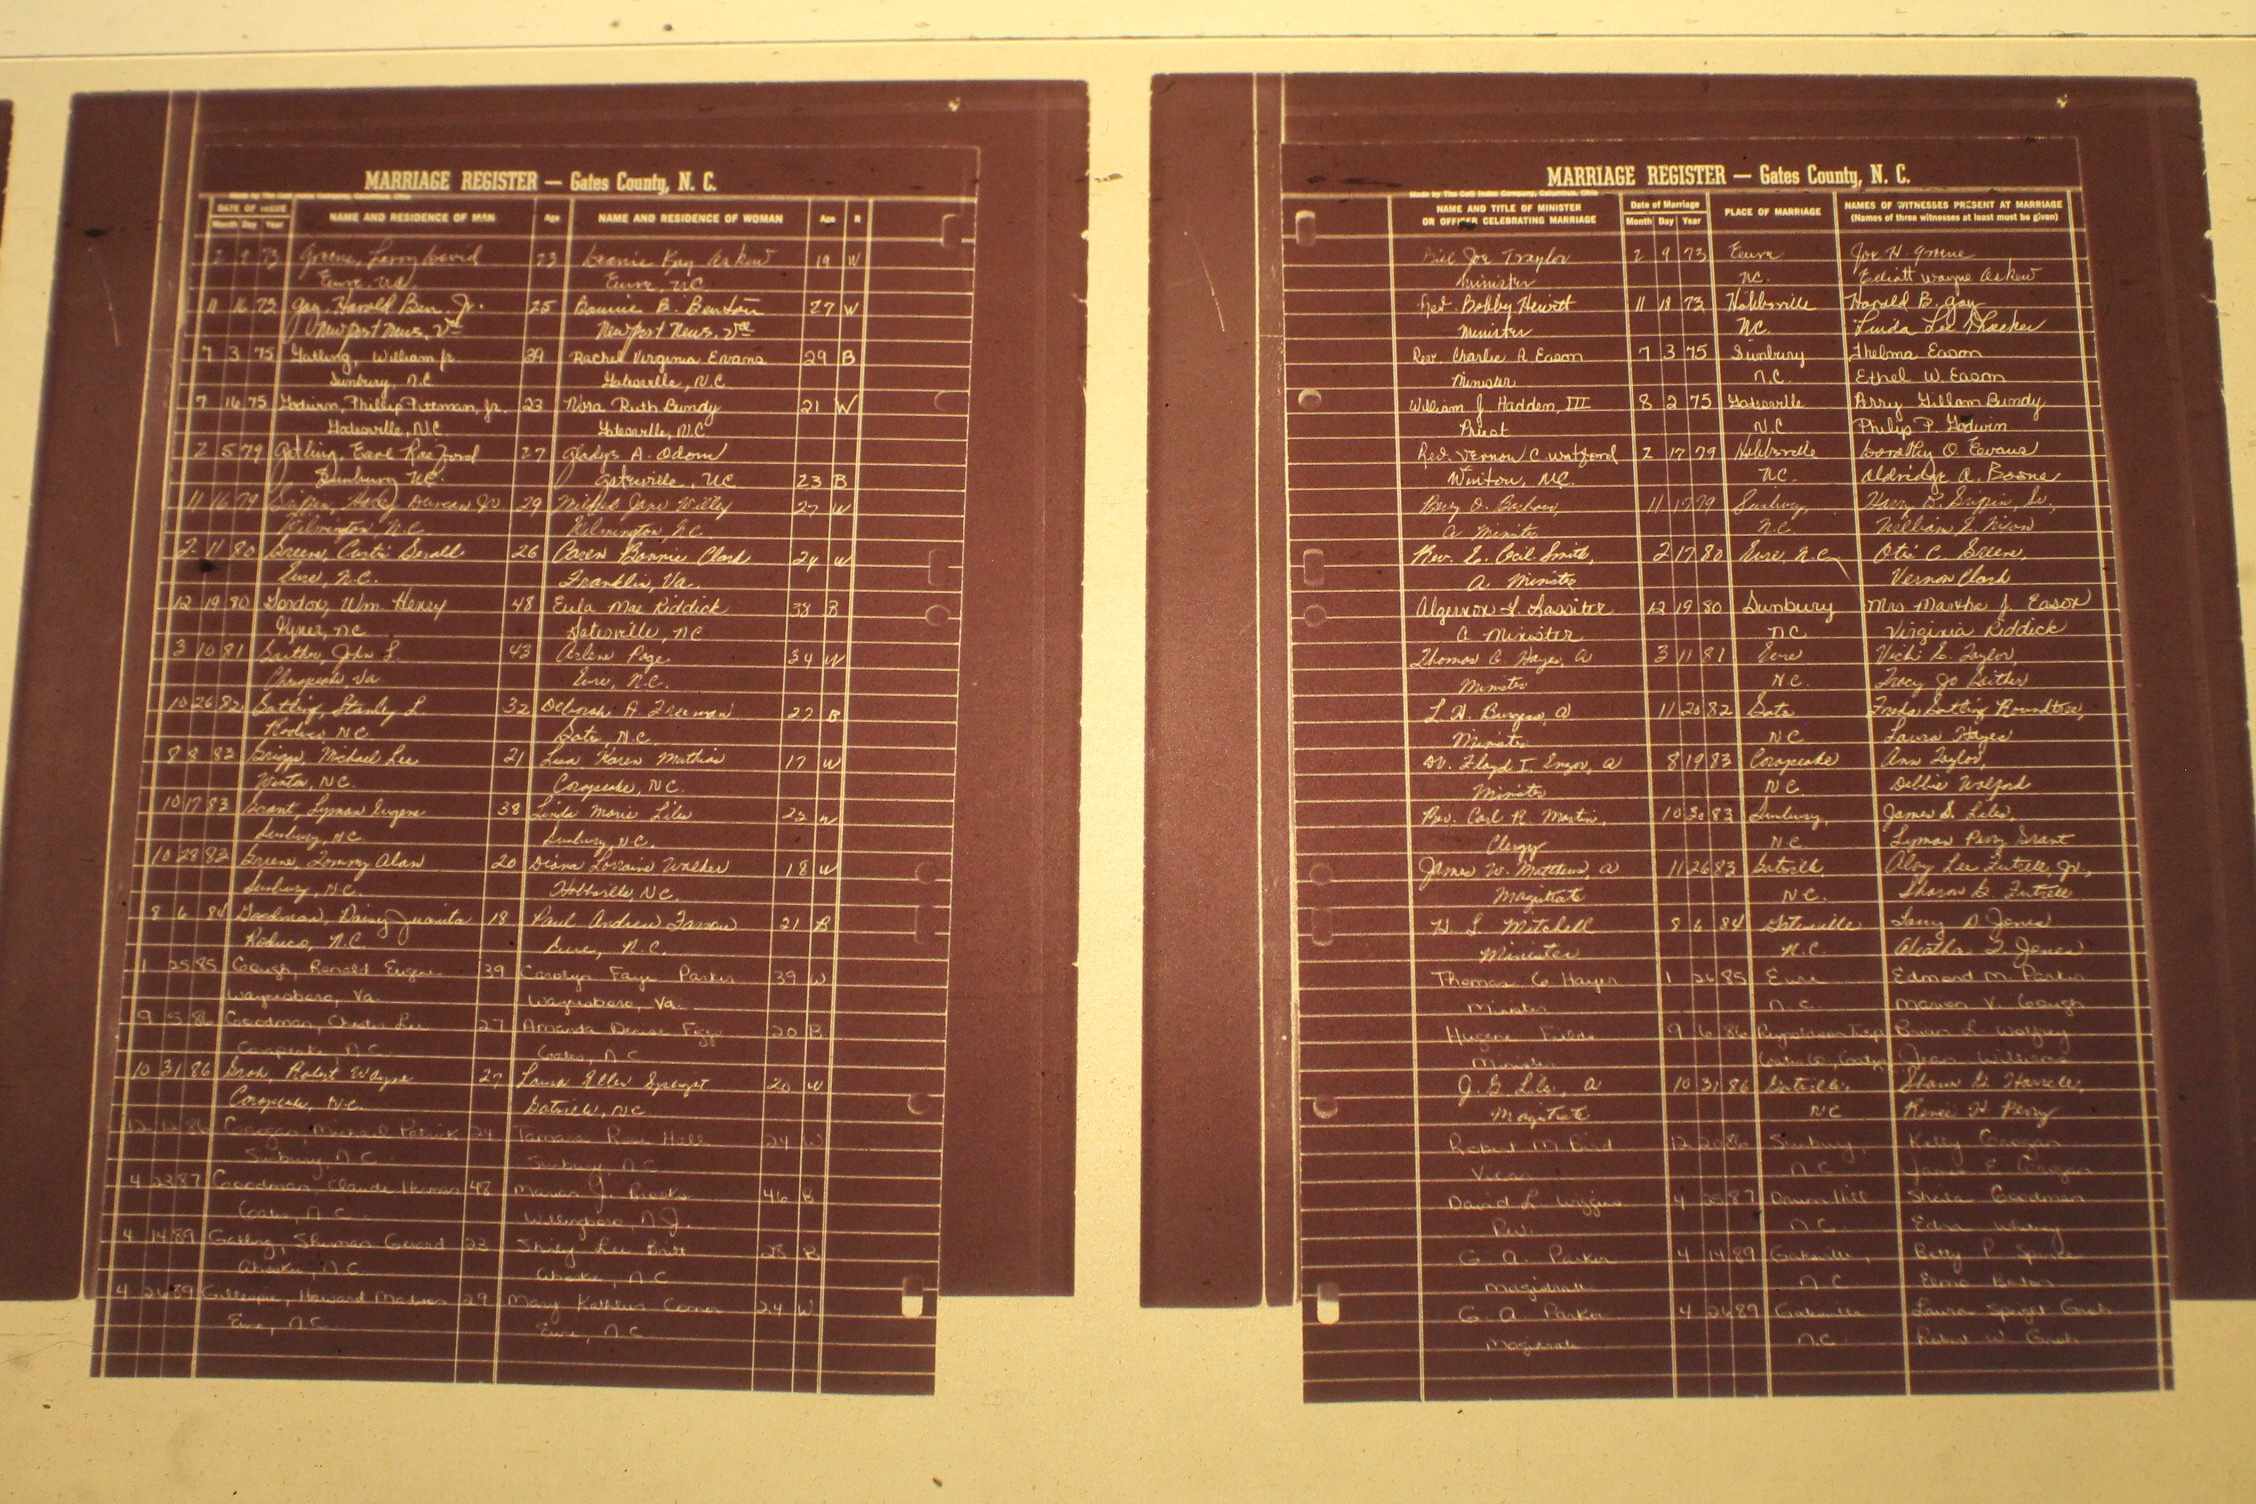 MARRIAGE REGISTER — Gates County, N. C.
DATE OF ISSUE
NAME AND RESIDENCE OF MAN Age NAME AND RESIDENCE OF WOMAN Age R
Month Day Year
2 9 73 Greene, Larry David 23 Kay Askew 19 W
Eure, NC Eure, NC
11 16 73 Gay, Harold Ben Jr. 25 Bonnie B. Benton 27 W
Newport News, Va Newport News, Va
7 3 75 Gatling, William Jr. 39 Rachel Virginia Evans 29 B
Sunbury, N.C Gatesville, N.C
7 16 75 Godwin, Phillip Pittman, Jr. 23 Nora Ruth Bundy 21 W
Gatesville, N.C. Gatesville, N.C
2 5 79 Gatling, Earl Rae Ford 27 Gladys A. Odom
Sunbury NC. Gatesville, NC 23 B
11 16 79 Griffin, Duncan Jr 29 Mildred Jane Willey 27 W
Wilmington, N.C. Wilmington, N.C.
2 11 80 Greene, Curtis Gerald 26 Caren Bonnie Clark 24 W
Eure, N.C. Franklin, Va.
12 19 80 Gordon, Wm. Henry 48 Eula Mae Riddick 38 B
Tyner, NC Gatesville, NC
3 10 81 Gaither, John L. 43 Arlene Page 34 W
Chesapeake, Va. Eure, N.C.
10 26 82 Gatling, Stanley L. 32 Deborah A. Freeman 27 B
Roduco, NC Gates N.C.
8 8 83 Griggs, Michael Lee 21 Lisa Karen Mathias 17 W
Winton, N.C. Corapeake, N.C.
10 17 83 Grant, Lyman Eugene 38 Linda Marie Liles 22 W
Sunbury, N.C Sunbury, N.C.
10 28 83 Greene, Tommy Alan 20 Diana Lorraine Walker 18 W
Sunbury, N.C. Hobbsville, N.C.
8 6 84 Goodman, Daisy Juanita 18 Paul Andrew 21 B
Roduco, N.C. Eure, N.C.
1 25 85 Gough, Ronald Eugene 39 Carolyn Faye Parker 39 W
Waynesboro, Va. Waynesboro, Va.
9 5 86 Goodman, Chester Lee 27 Amanda Denise 20 B
Corapeake, N.C. Gates, N.C
10 31 86 Grob, Robert Wayne 27 Laura Ellen Speight 20 W
Corapeake, N.C. Gatesville, NC
12 12 86 Grogan, Michael Patrick 24 Tamara Rose Hall 24 W
Sunbury, N.C. Sunbury, N.C.
4 23 87 Goodman, Claude 48 Marian J. Brooks 46 B
Gates, N.C. Willingboro, N.J.
4 14 89 Gatling, Sherman Gerard 23 Shirley Lee 28 B
N.C. N.C
4 26 89 Gillespie, Howard Madison 29 Mary Kathleen 24 W
Eure, N.C. Eure, N.C
MARRIAGE REGISTER — Gates County, N. C.
Made by The Cott Index Company, Columbus, Ohio
NAME AND TITLE OF MINISTER OR OFFICER CELEBRATING MARRIAGE Date of Marriage Month Day Year PLACE OF MARRIAGE NAMES OF WITNESSES PRESENT AT MARRIAGE
(Names of three witnesses at least must be given)
Joe Traylor 2 9 73 Eure Joe H. Greene
Minister NC. Elliott Wayne Askew
Rev. Bobby Hewitt 11 18 73 Hobbsville Harold B. Gay
Minister NC. Linda Lee Thacker
Rev. Charlie R Eason 7 3 75 Sunbury Thelma Eason
Minister N.C. Ethel W. Eason
William J. Hadden, III 8 2 75 Gatesville Perry Gillam Bundy
Priest N.C Philip P. Godwin
Rev. Vernon C. Watford 2 17 79 Hobbsville Dorothy O. Eevans
Winton, NC. NC. Aldridge A. Boone
11 17 79 Sunbury, Harry D. Griffin, Sr.,
A Minister N.C. William L. Nixon
Rev. E. Cecil Smith, 2 17 80 Eure, N.C. Otis C. Greene,
A. Minister Vernon Clark
Algernon L. Lassiter 12 19 80 Sunbury Mrs Martha J. Eason
A Minister NC Virginia Riddick
Thomas G. Hayes, A 3 11 81 Eure Vicki L. Taylor,
Minister N.C. Tracy Jo Gaither
L. H. Burgess, A 11 20 82 Gates Gatling Roundtree,
Minister NC Laura Hayes
Dr. Floyd T. Enzor, A 8 19 83 Corapeake Ann Taylor,
Minister N.C. Debbie Walford
Rev. Carl R. Martin, 10 30 83 Sunbury, James S. Liles,
Clergy N.C. Lyman Perry Grant
James W. Matthews, A 11 26 83 Gatesville Aloy Lee Futrell, Jr.,
Magistrate N.C. Sharon G. Futrell
H L Mitchell 8 6 84 Gatesville Larry D Jones
Minister N.C. Aleatha L. Jones
Thomas G Hayes 1 26 85 Eure Edmond M. Parker
Minister N.C. Marion V. Gough
Eugene Fields 9 6 86 Reynoldson Twsp Brian L. Wolfrey
Minister Gates Co., Jean Williams
J. G. Liles, A 10 31 86 Gatesville, Shawn G. Harrell,
Magistrate NC Renee H Perry
Robert M. Bird 12 20 86 Sunbury, Kelly Grogan
Vicar N.C. Janie E. Grogan
David L Wiggins 4 25 87 Drum Hill Sheila Goodman
Rev. N.C. Edna
G. A. Parker 4 14 89 Gatesville, Betty P.
Magistrate N.C Elma
G. A. Parker 4 26 89 Gatesville Laura Speight Grob
Magistrate N.C. Robert W. Grob